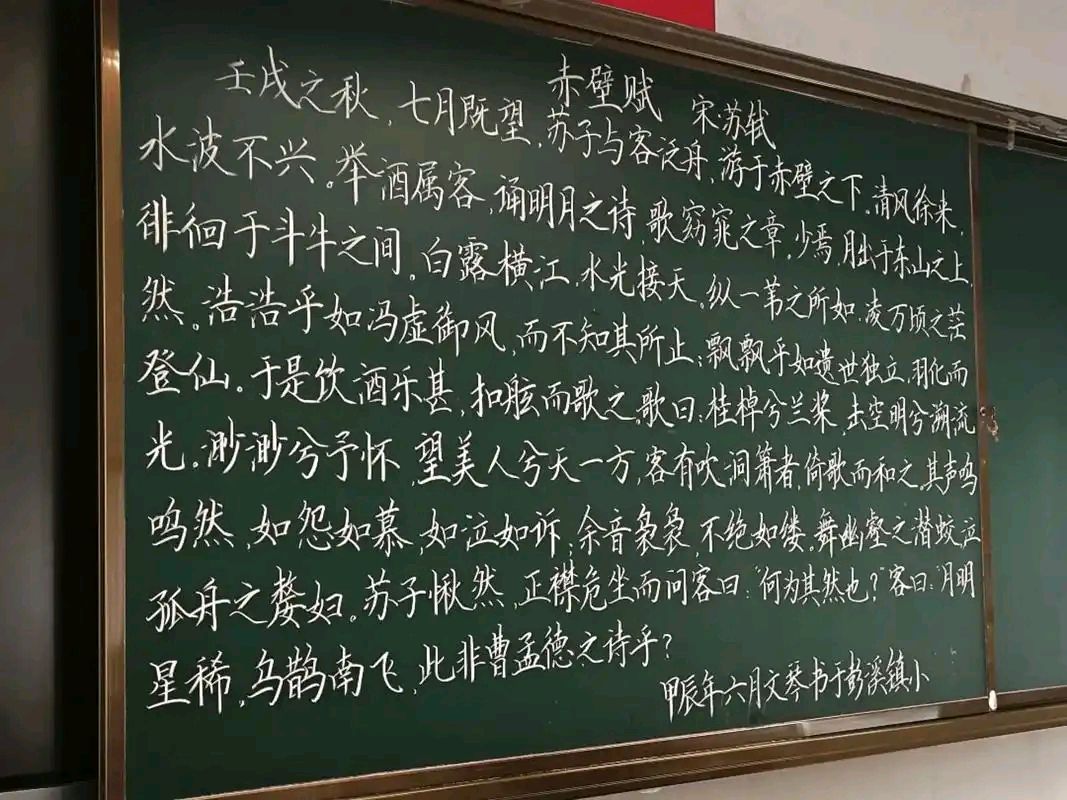 赤壁赋 宋苏轼
壬戌之秋,七月既望,苏子与客泛舟,游于赤壁之下。清风徐来,
水波不兴。举酒属客,诵明月之诗,歌窈窕之章。少焉,月出于东山之上,
徘徊于斗牛之间。白露横江,水光接天。纵一苇之所如,凌万顷之茫
然。浩浩乎如冯虚御风,而不知其所止;飘飘乎如遗世独立,羽化而
登仙。于是饮酒乐甚,扣舷而歌之。歌曰:桂棹兮兰桨,击空明兮溯流
光。渺渺兮予怀,望美人兮天一方,客有吹洞箫者,倚歌而和之。其声呜
呜然,如怨如慕,如泣如诉;余音袅袅,不绝如缕。舞幽壑之潜蛟,泣
孤舟之嫠妇。苏子愀然,正襟危坐而问客曰:"何为其然也?"客曰:"月明
星稀,乌鹊南飞,此非曹孟德之诗乎?
甲辰年六月文琴书于彭溪镇小